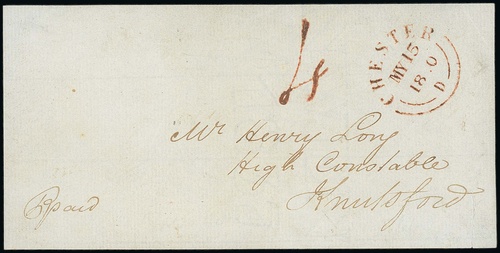 CHESTER
MY 15
18 0
D
Mr Henry Long
High Constable
Knutsford
Ppaid